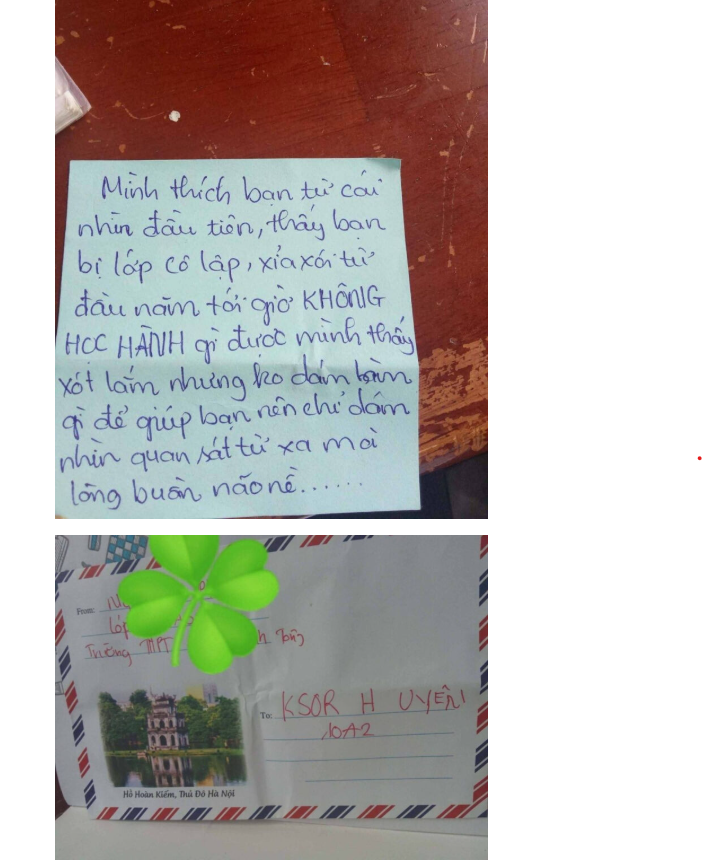 Mình thích bạn từ cái
nhìn đầu tiên, thấy bạn
bị lớp cô lập, xỉa xói từ
đầu năm tới giờ KHÔNG
HỌC HÀNH gì được mình thấy
xót lắm nhưng ko dám làm
gì để giúp bạn nên chỉ dám
nhìn quan sát từ xa mà
lòng buồn não nề......
From:
Lớp
Trường THPT
To: KSOR H UYÊN
10A2
Hồ Hoàn Kiếm, Thủ Đô Hà Nội